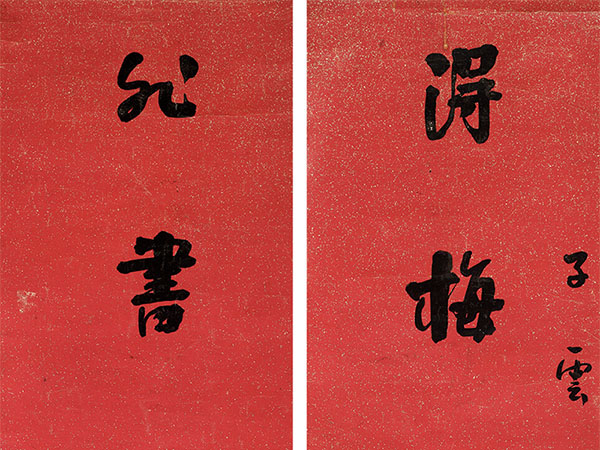 得梅
書
子雲